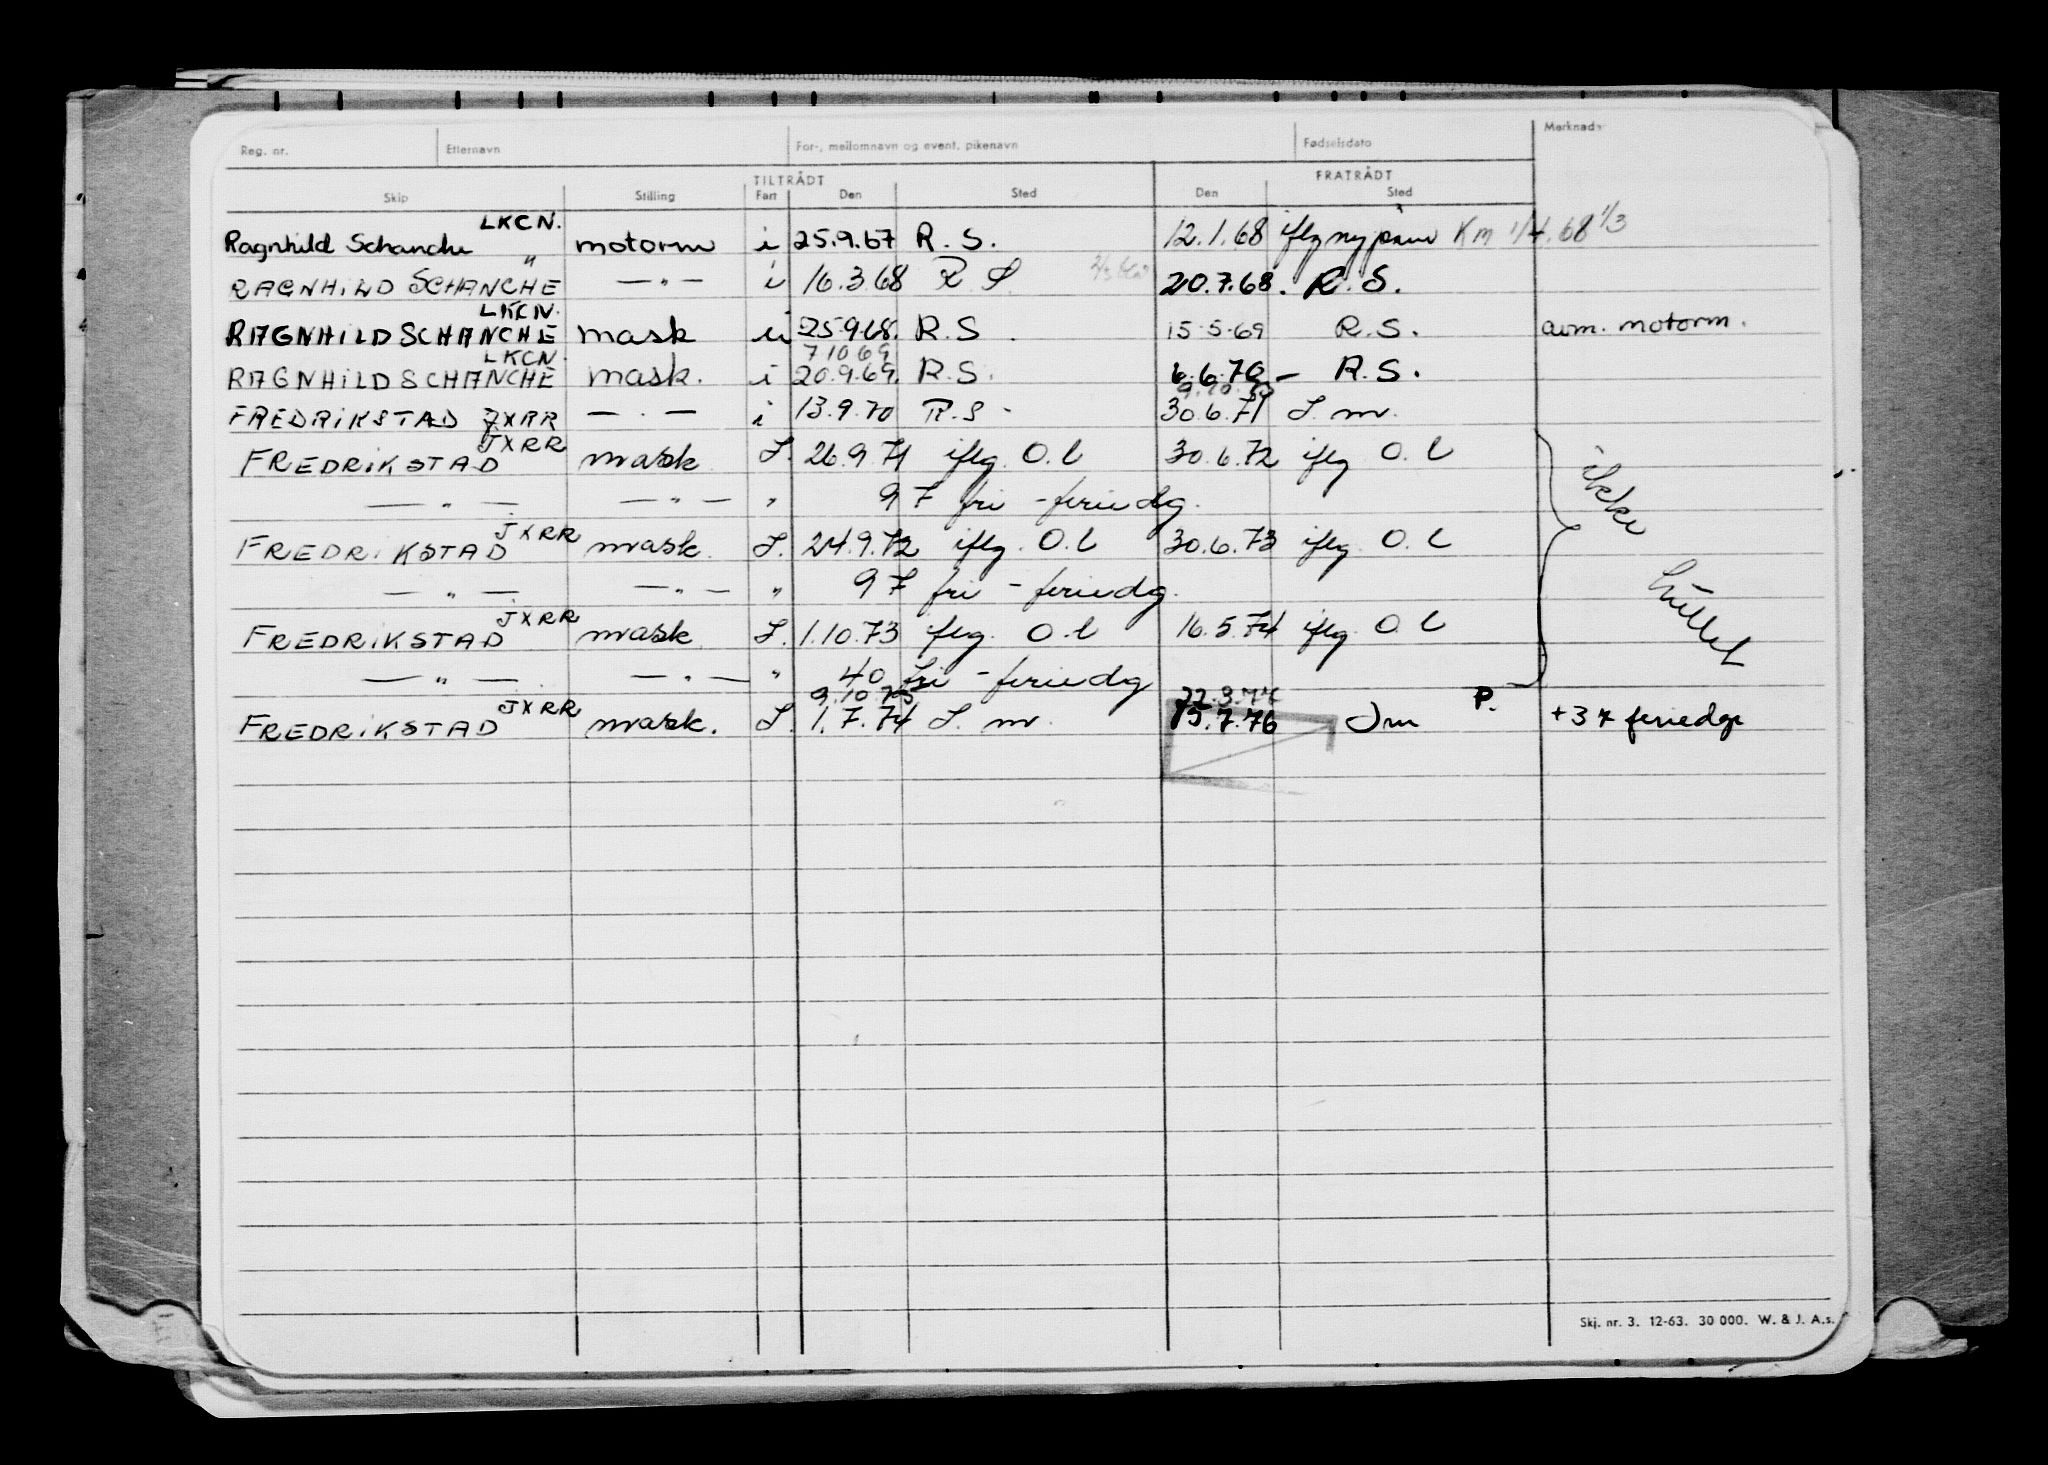 Reg. nr. Etternavn For-, mellomnavn og event. pikenavn Fødselsdato Merknader
TILTRÅDT FRATRÅDT
Skip Stilling Fart Den Sted Den Sted
LKCN.
Ragnhild Schanche motorm i 25.9.67 R.S. 12.1.68 iflg ny Km 1/4.68 1/3
"
RAGNHILD SCHANCHE — " — i 16.3.68 R S. 20.7.68. R.S.
LKCN.
RAGNHILD SCHANCHE mask u 25.9.68. R.S. 15.5.69 R.S. avm. motorm.
LKCN. 7 10 69
RAGNHILD SCHANCHE mask. i 20.9.69. R.S. 6.6.70 — R.S.
FREDRIKSTAD JXRR — . — i 13.9.70 R.S - 30.6.71 S. m.
JXRR
FREDRIKSTAD mask S. 26.9.71 iflg. O.l 30.6.72 iflg O.l
— " — — " — " 97 fri - feriedg.
JXRR
FREDRIKSTAD mask. S. 24.9.72 iflg. O.l 30.6.73 iflg. O.l
— " — — " — " 97 fri - feriedg.
JXRR
FREDRIKSTAD mask S. 1.10.73 iflg. O.l 16.5.74 iflg. O.l
— " — — " — " 40 fri - feriedg
ikke hullet
JXRR 9.10.75 P.
FREDRIKSTAD mask. S. 1.7.74 S. m. 15.7.76 Sm +37 feriedgr
Skj. nr. 3. 12-63. 30 000. W. & J. A.s.